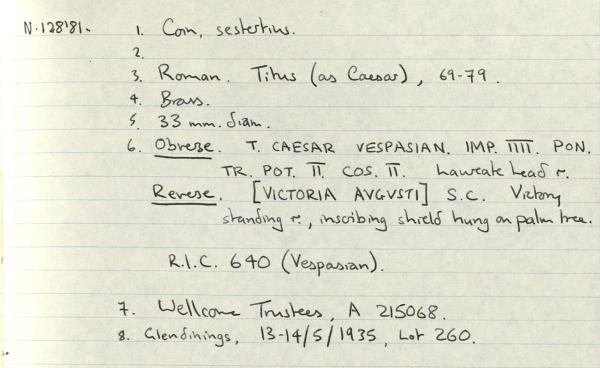 N.128'81.
1. Coin, sestertius.
2.
3. Roman. Titus (as Caesar), 69-79.
4. Brass.
5. 33 mm. diam.
6. Obverse. T. CAESAR VESPASIAN. IMP. IIII. PON.
TR. POT. II. COS. II. Laureate head r.
Reverse. [VICTORIA AVGVSTI] S.C. Victory
standing r., inscribing shield hung on palm tree.
R.I.C. 640 (Vespasian).
7. Wellcome Trustees, A 215068.
8. Glendinings, 13-14/5/1935, Lot 260.